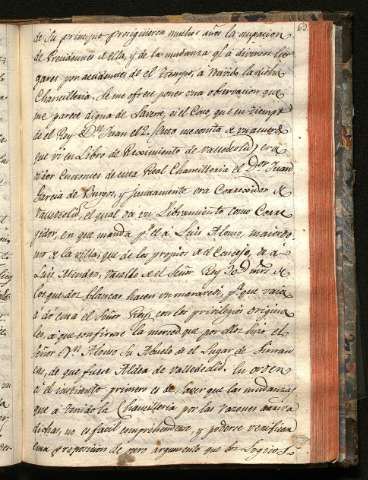 60
de su principio prosiguieron muchos años la
de Presidentes de ella, y de la mudanza q.e a diversos lu-
gares por accidentes de el tiempo, a tenido la dicha
Chancilleria. Se me ofrece poner una observacion que
me parece digna de saverse, i es Como, que en tiempo
de el Rey D.n Juan el 2.
que vi en Libro de de Valladolid, era
de esta Real Chancilleria el D.or Juan
Garcia de Burgos, y juntamente era Correxidor de
Valladolid, el qual da un Libramiento como Corre-
gidor, en que manda q.e el a Luis Alonso, maiordo-
mo de la villa que de los propios de el Concejo, de a
Luis Mendez, vasallo de el Señor Rey 20 D mrs. de
los que dos blancas hacen un maravedi, p.a que vaia
a do esta el Señor Rey con los privilegios origina-
les, a que confirme la merced que por ellos hizo el
Señor D.n Alonso su Abuelo de el Lugar de Siman-
cas, de que fuese Aldea de Valladolid. En orden
a el incidente primero es de saver que las mudanzas
que a tenido la Chancilleria por las razones arriva
dichas, no es facil comprehenderse y poderse verificar
una proposicion de pero argumento que los Logicos